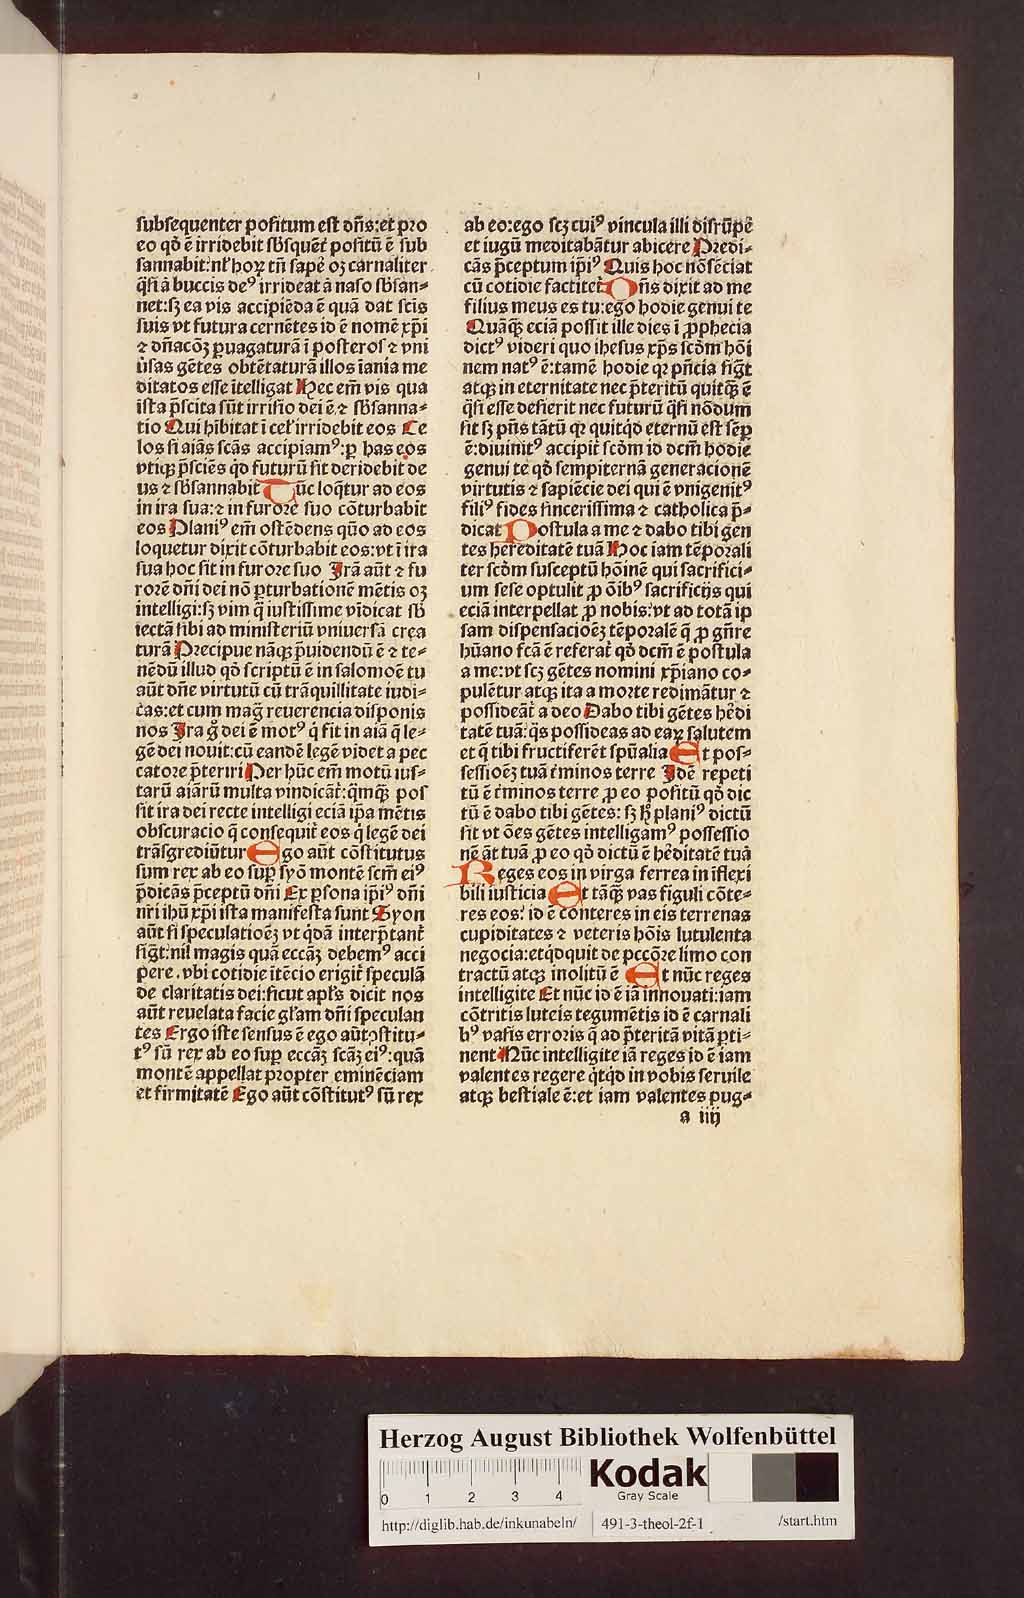 subsequenter positum est dñs:et pro
eo qđ ē irridebit sƀsquēt positū ē sub
sannabit:nł hoꝝ tñ sapē oꝫ carnaliter
q̄si a buccis deꝰ irrideat a naso sƀsan-
net:sꝫ ea vis accipiēda ē quā dat scīs
suis vt futura cernētes id ē nomē xp̄i
⁊ dñacōꝫ ꝑuagaturā ī posteros ⁊ vni
ūsas gētes obtētaturā illos īania me
ditatos esse ītelligat Hec em̄ vis qua
ista p̄scita sūt irrisio dei ē.⁊ sƀsanna-
tio Qui hībitat ī ceł irridebit eos Ce
los si aīas scās accipiamꝰ:ꝑ has eos
vtiqꝫ p̄sciēs qđ futurū sit deridebit de
us ⁊ sƀsannabit Tūc loq̄tur ad eos
in ira sua:⁊ in furore suo cōturbabit
eos Planiꝰ em̄ ostēdens quō ad eos
loquetur dixit cōturbabit eos:vt ī ira
sua hoc sit in furore suo Irā aūt ⁊ fu
rorē dñi dei nō ꝑturbationē mētis oꝫ
intelligi:sꝫ vim q̄ iustissime vīdicat sƀ
iectā sibi ad ministeriū vniuersā crea
turā Precipue nāqꝫ p̄uidendū ē ⁊ te-
nēdū illud qđ scriptū ē in salomoē tu
aūt dñe virtutū cū trāquillitate iudi-
cas:et cum mag̃ reuerencia disponis
nos Ira g̊ dei ē motꝰ q̄ fit in aīa q̄ le-
gē dei nouit:cū eandē legē videt a pec
catore p̄teriri Per hūc em̄ motū ius-
tarū aīarū multa vindicāt:q̄mqꝫ pos
sit ira dei recte intelligi eciā ip̄a mētis
obscuracio q̄ consequit̄ eos q̄ legē dei
trāsgrediūtur Ego aūt cōstitutus
sum rex ab eo suꝑ syō montē scm̄ eiꝰ
p̄dicās p̄ceptū dñi Ex ꝑsona ip̄iꝰ dñi
nr̄i ihū xp̄i ista manifesta sunt Syon
aūt si speculatioēꝫ vt qđā interp̄tant̄
sigt̄:nil magis quā eccāꝫ debemꝰ acci
pere.vbi cotidie ītēcio erigit̄ speculā
de claritatis dei:sicut apłs dicit nos
aūt reuelata facie głam dñi speculan
tes Ergo iste sensus ē ego aūt ꝯstitu-
tꝰ sū rex ab eo suꝑ eccāꝫ scāꝫ eiꝰ:quā
montē appellat propter eminēciam
et firmitatē Ego aūt cōstitutꝰ sū rex
ab eo:ego scꝫ cuiꝰ vincula illi disrūpē
et iugū meditabāntur abicere Predi-
cās p̄ceptum ip̄iꝰ Quis hoc nō sēciat
cū cotidie factitet Dñs dixit ad me
filius meus es tu:ego hodie genui te
Quāqꝫ eciā possit ille dies ī ꝓphecia
dictꝰ videri quo ihesus xp̄s scđm hōi
nem natꝰ ē:tamē hodie qꝛ p̄ñcia sigt̄
atqꝫ in eternitate nec p̄teritū quitqꝫ ē
q̄si esse desierit nec futurū q̄si nōdum
sit sꝫ p̄ñs tātū qꝛ quitqđ eternū est seꝑ
ē:diuinitꝰ accipit̄ scđm id dcm̄ hodie
genui te qđ sempiternā generacionē
virtutis ⁊ sapiēcie dei qui ē vnigenitꝰ
filiꝰ fides sincerissima ⁊ catholica p̄-
dicat Postula a me ⁊ dabo tibi gen
tes hereditatē tuā Hoc iam tēporali
ter scđm susceptū hōinē qui sacrifici-
um sese optulit ꝓ ōibꝰ sacrificijs qui
eciā interpellat ꝓ nobis:vt ad totā ip
sam dispensacioēꝫ tēporalē q̄ ꝓ gn̄re
hūano fcā ē referat̄ qđ dcm̄ ē postula
a me:vt scꝫ gētes nomini xp̄iano co-
pulētur atqꝫ ita a morte redimātur ⁊
possideāt̄ a deo Dabo tibi gētes hēdi
tatē tuā:q̄s possideas ad eaꝝ salutem
et q̄ tibi fructiferēt spūalia Et pos-
sessioēꝫ tuā t̄minos terre Idē repeti
tū ē t̄minos terre ꝓ eo positū qđ dic
tū ē dabo tibi gētes: sꝫ h̄ planiꝰ dictū
sit vt ōes gētes intelligamꝰ possessio
nē āt tuā ꝓ eo qđ dictū ē hēditatē tuā
Reges eos in virga ferrea in iflexi
bili iusticia Et tāqꝫ vas figuli cōte-
res eos: id ē conteres in eis terrenas
cupiditates ⁊ veteris hōis lutulenta
negocia:et qđ quit de pccōre limo con
tractū atqꝫ inolitū ē Et nūc reges
intelligite Et nūc id ē iā innouati:iam
cōtritis luteis tegumētis id ē carnali
bꝰ vasis erroris q̄ ad p̄teritā vitā ꝑti-
nent Nūc intelligite iā reges id ē iam
valentes regere q̄tqđ in vobis seruile
atqꝫ bestiale ē:et iam valentes pug-
a iiij
Herzog August Bibliothek Wolfenbüttel
0 1 2 3 4
Kodak
Gray Scale
http://diglib.hab.de/inkunabeln/ 491-3-theol-2f-1 /start.htm